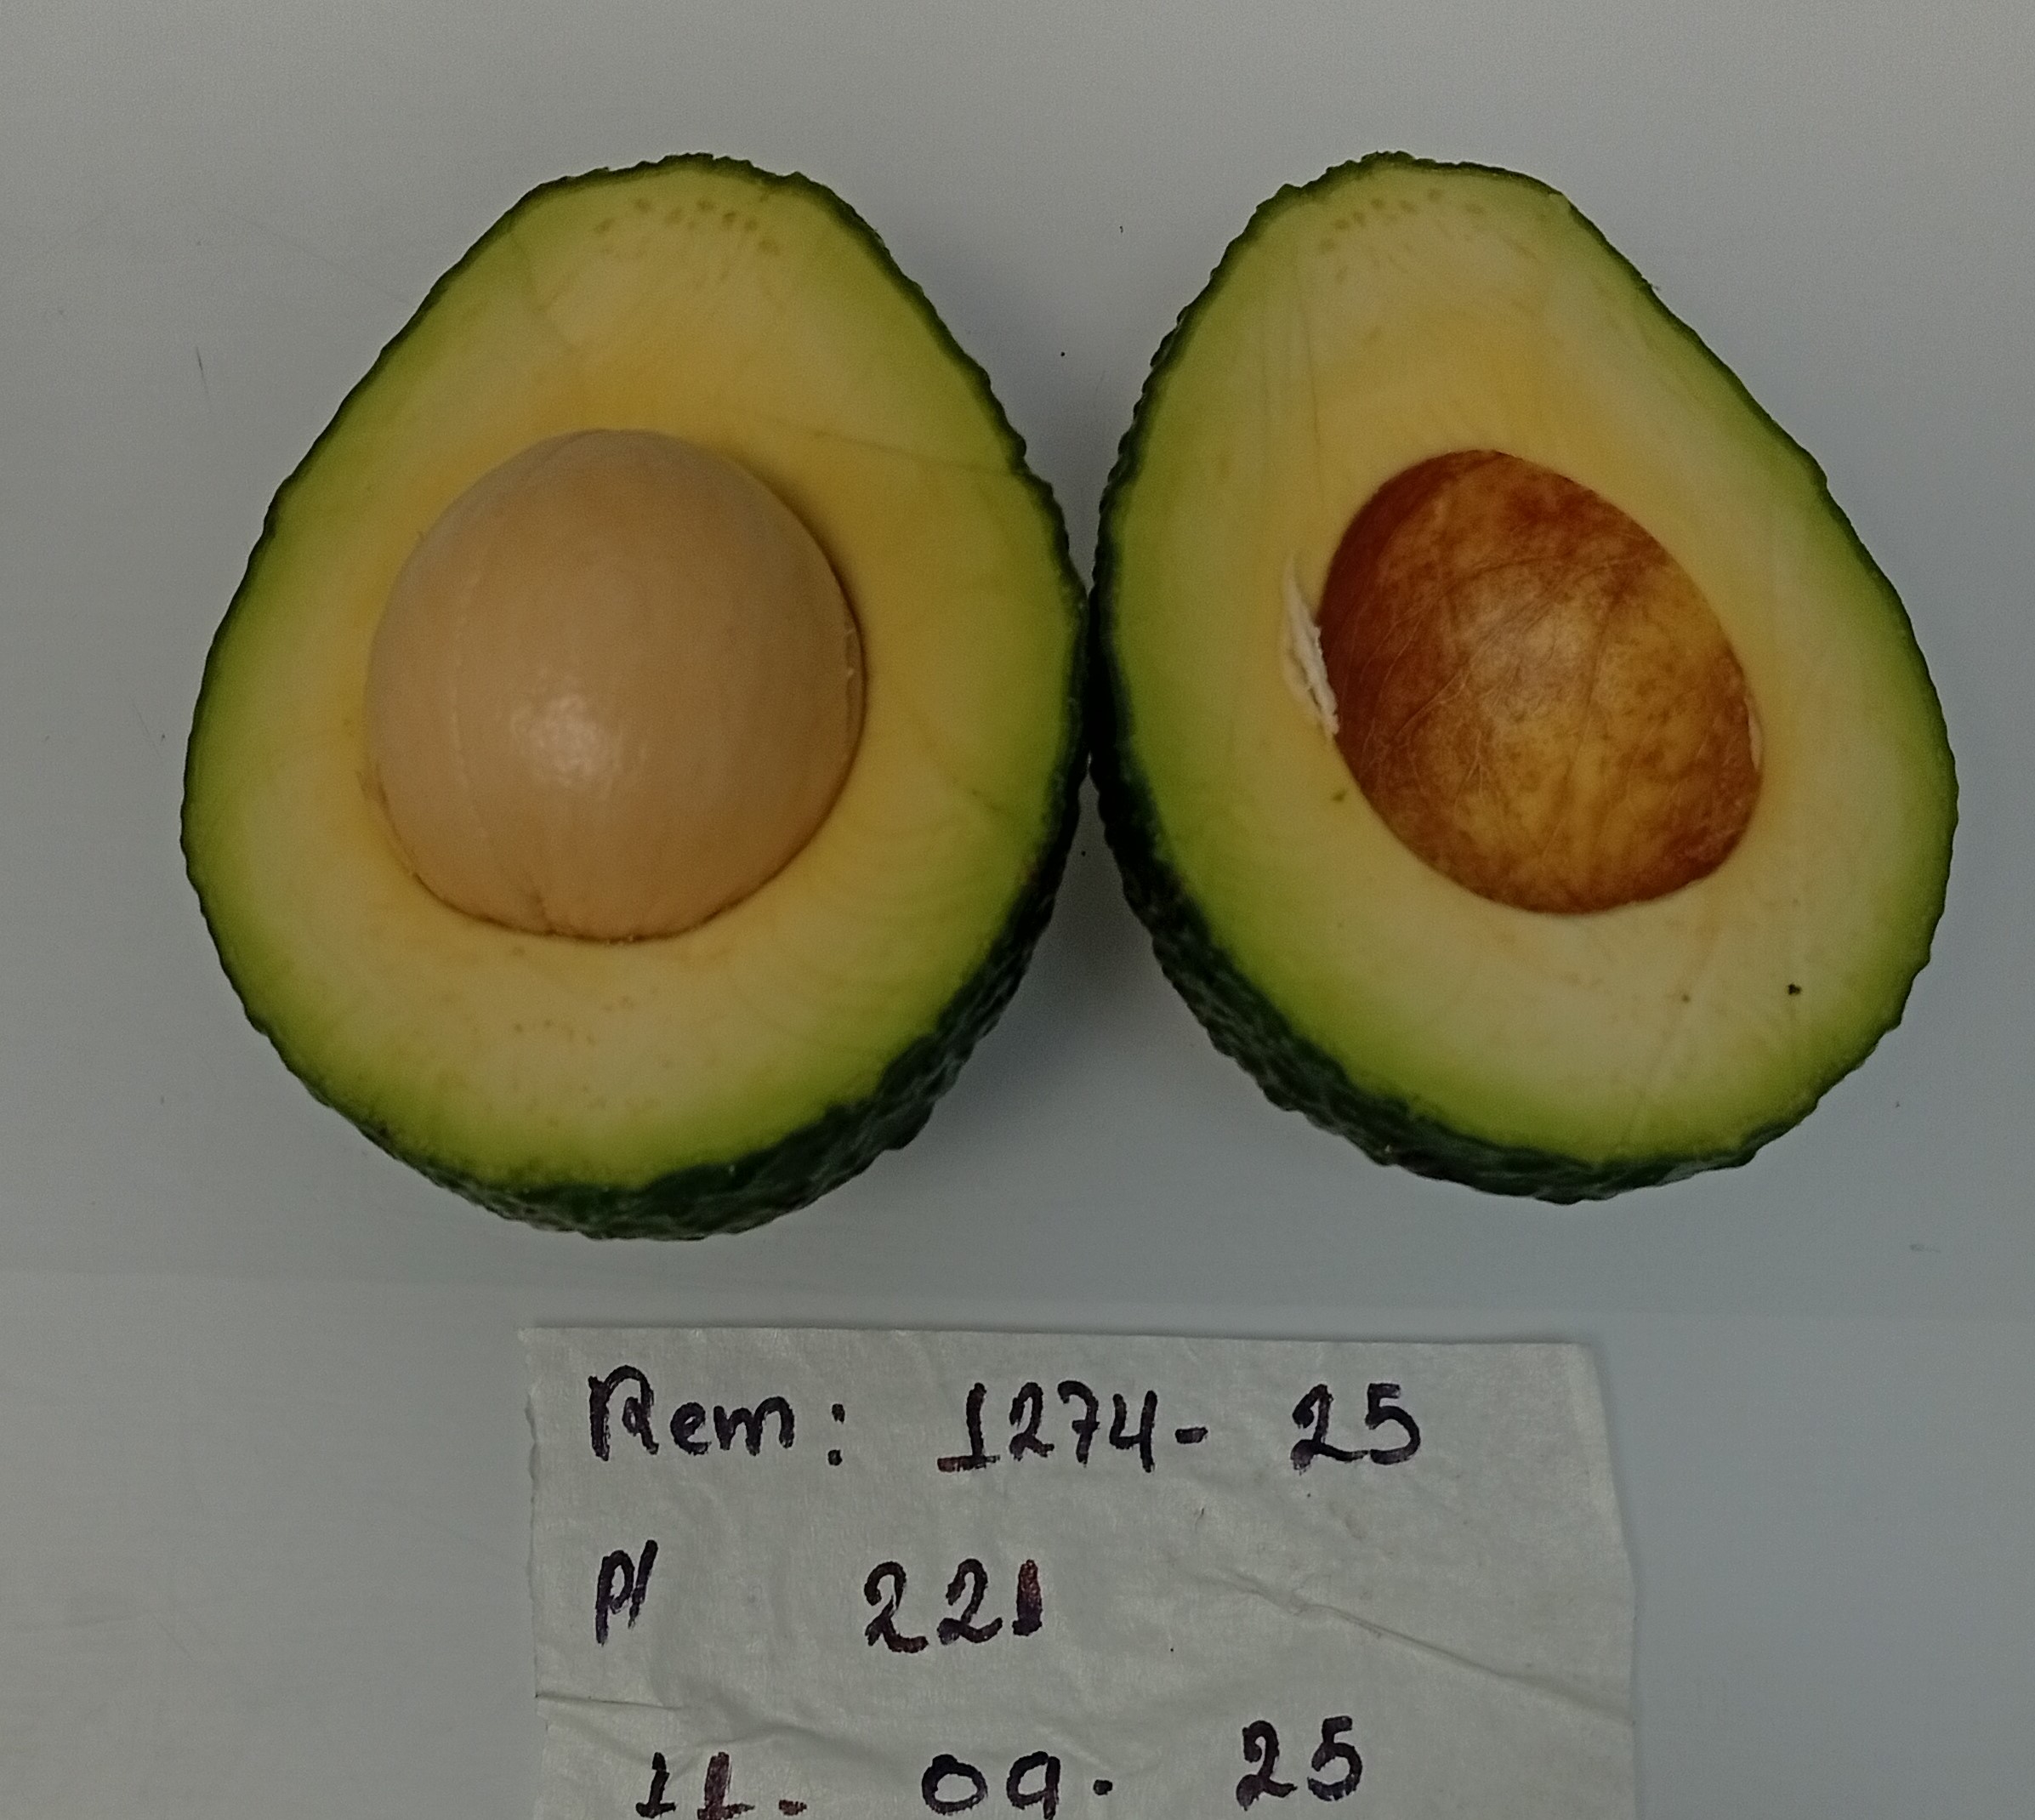 Rem: 1274- 25
P/ 221
11. 09. 25